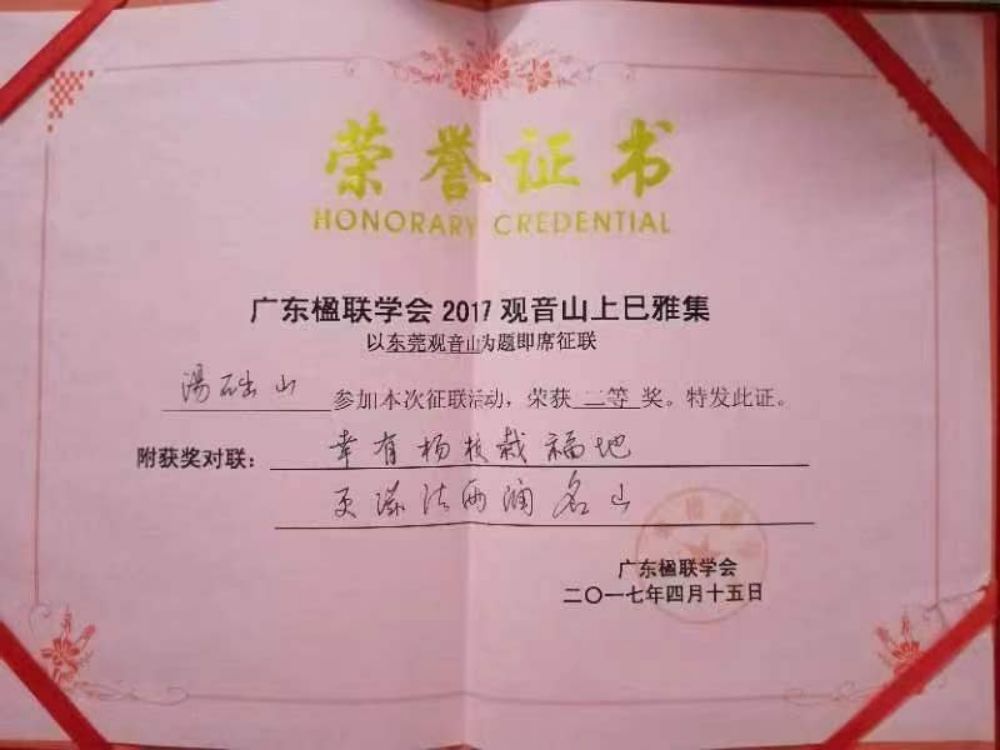 荣誉证书
HONORARY CREDENTIAL
广东楹联学会2017观音山上巳雅集
以东莞观音山为题即席征联
湯础山 参加本次征联活动，荣获 二等 奖。特发此证。
附获奖对联：幸有杨枝栽福地
更添法雨润名山
广东楹联学会
二〇一七年四月十五日